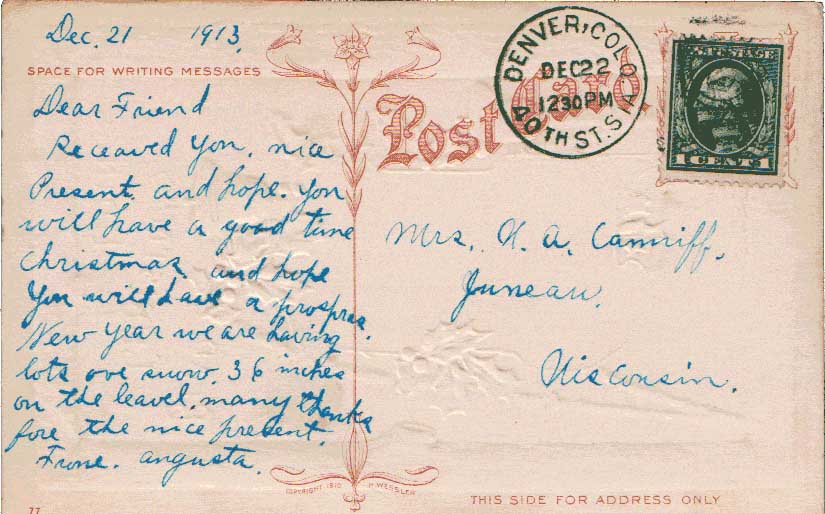 Dec. 21 1913.
SPACE FOR WRITING MESSAGES
Dear Friend
Receaved You, nice
Present and hope. You
will have a good time
Christmas and hope
You will have a prospras.
New Year we are having
lots ove snow. 36 inches
on the leavel, many thanks
fore the nice present.
Frome. angusta.
COPYRIGHT 1910 H. WESSLER
77
Post Card.
DENVER, COLO.
DEC 22
1230 PM
40TH ST. STA.
U.S. POSTAGE
1 CENT 1
Mrs. A.
Juneau.
Wisconsin.
THIS SIDE FOR ADDRESS ONLY